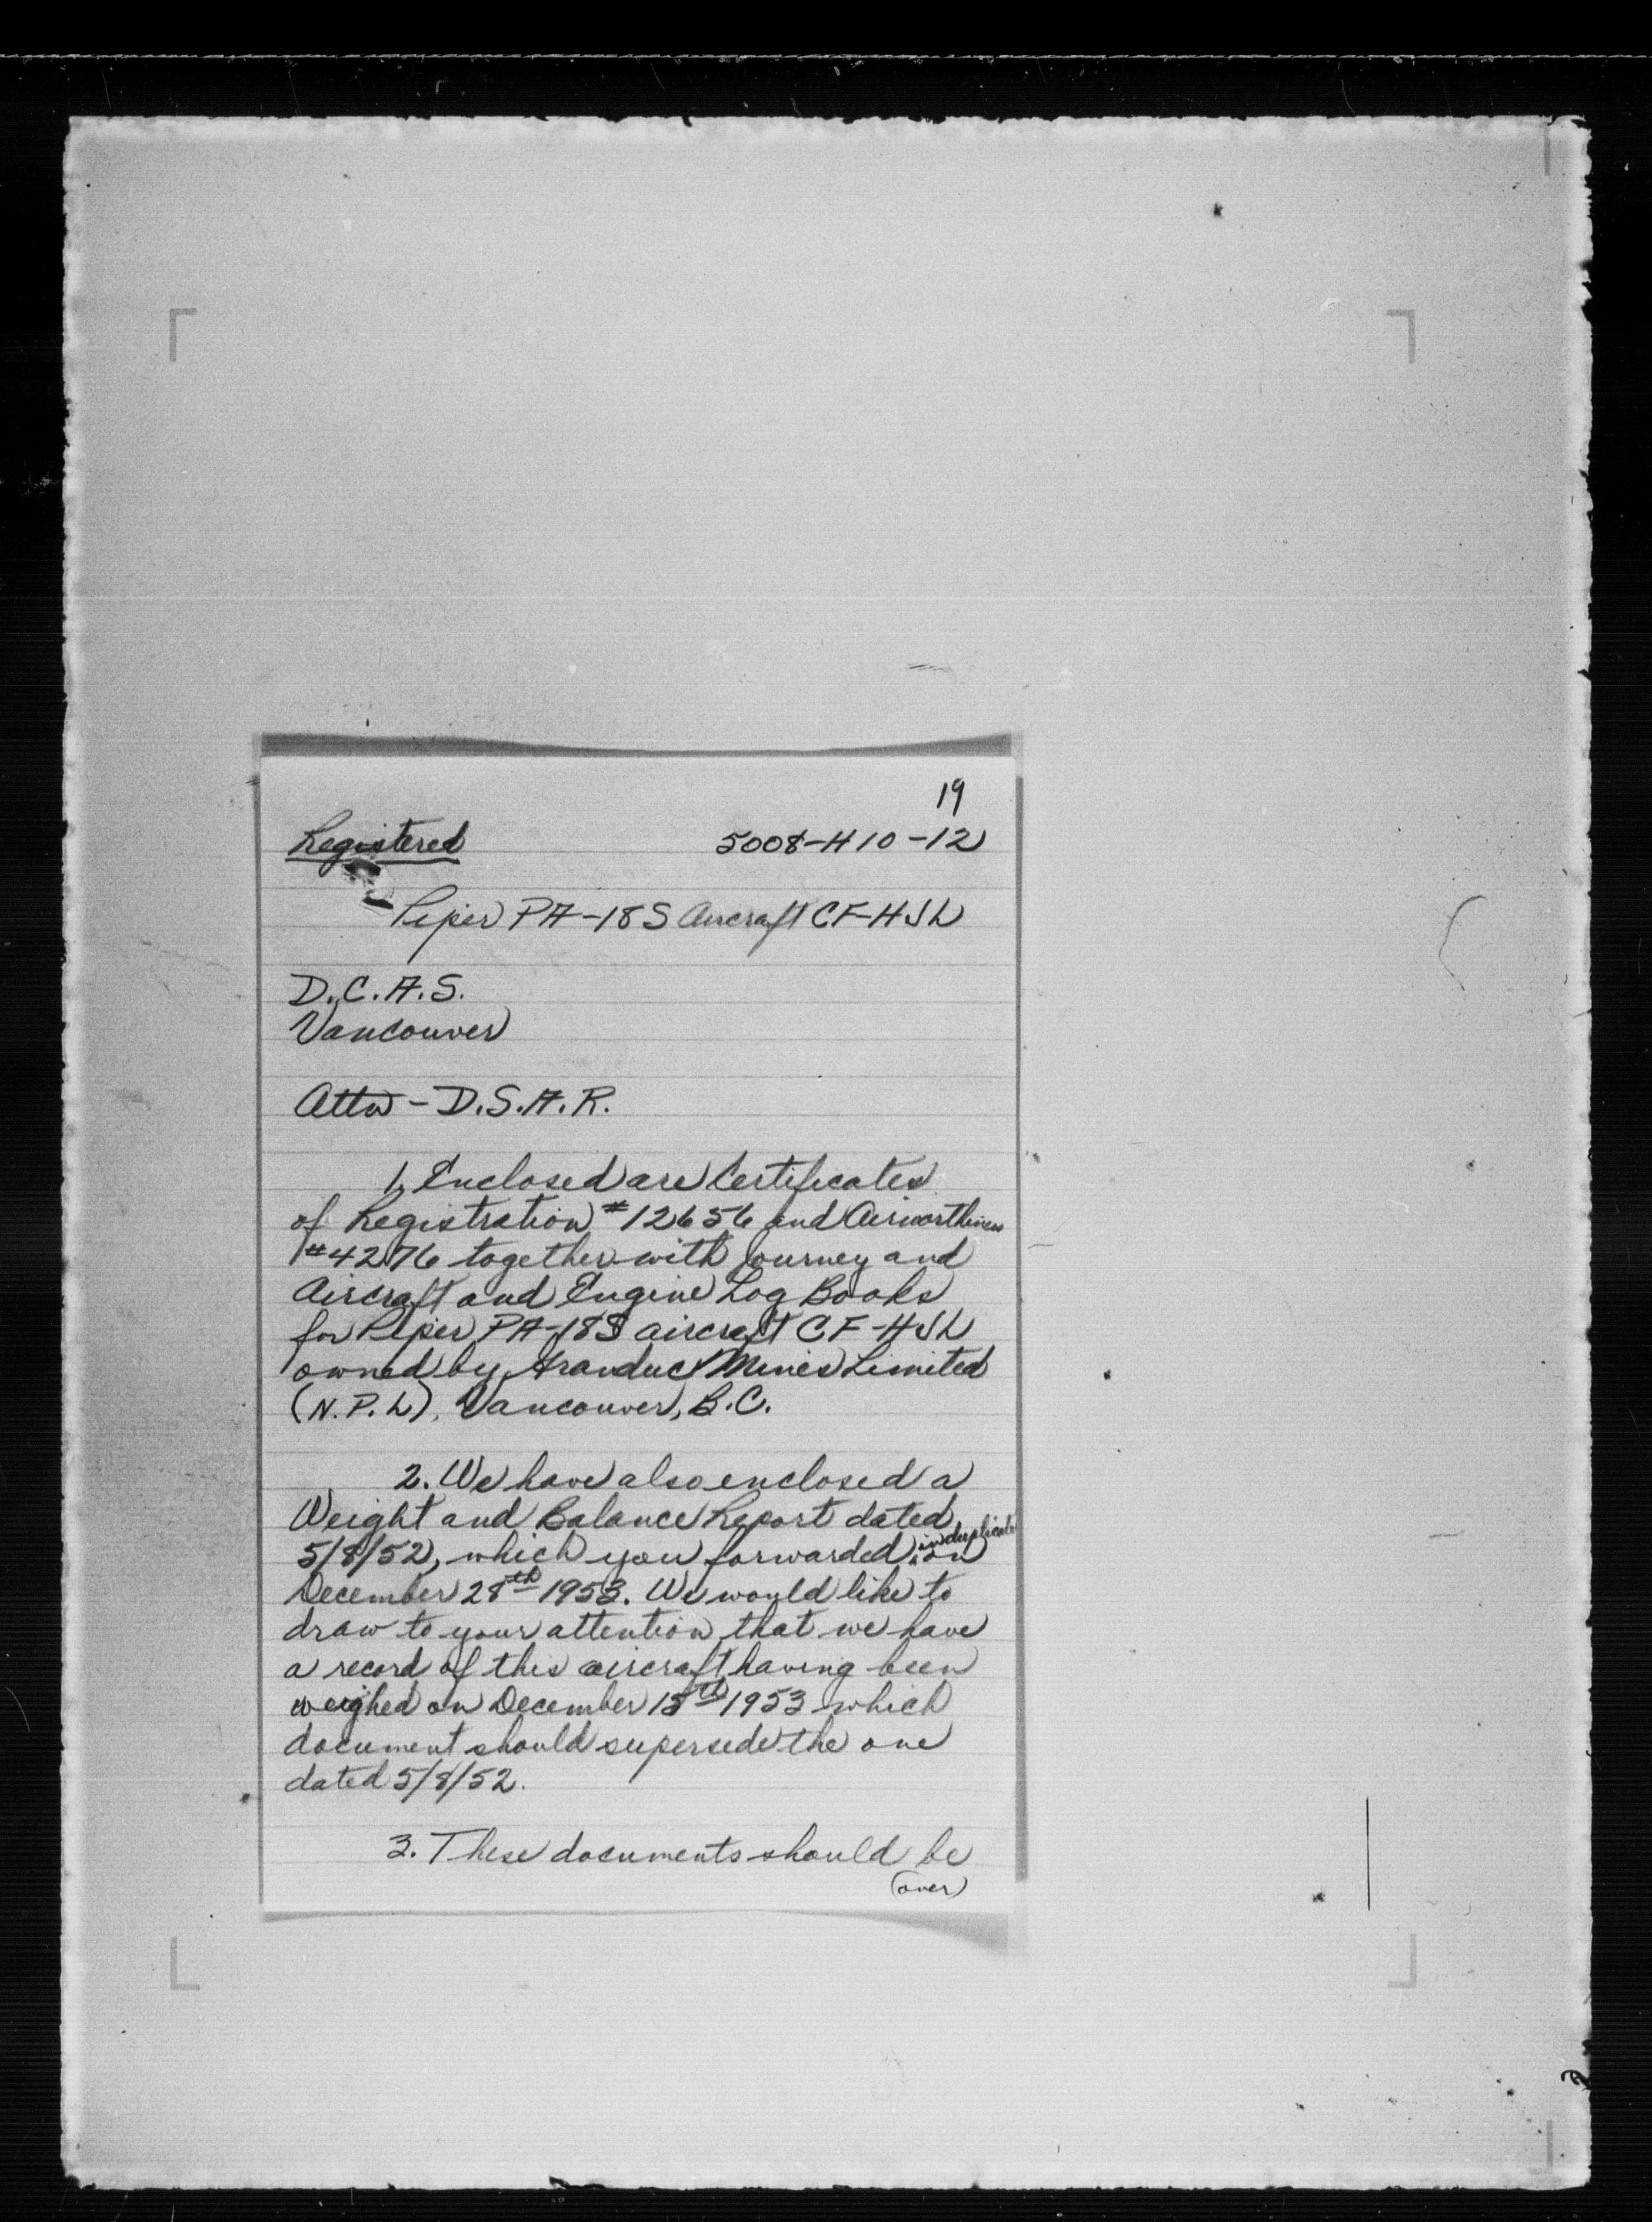 19
Registered 5008-H10-12
Piper PA-18S Aircraft CF-HJL
D.C.A.S.
Vancouver
Attn - D.S.A.R.
1. Enclosed are Certificates
of Registration #12656 and Airworthiness
#4276 together with Journey and
Aircraft and Engine Log Books
for Piper PA-18S aircraft CF-HJL
owned by Granduc Mines Limited
(N.P.L), Vancouver, B.C.
2. We have also enclosed a
Weight and Balance Report dated
in duplicate
5/8/52, which you forwarded on
December 28th 1953. We would like to
draw to your attention that we have
a record of this aircraft having been
weighed on December 15th 1953 which
document should supersede the one
dated 5/8/52.
3. These documents should be
(over)